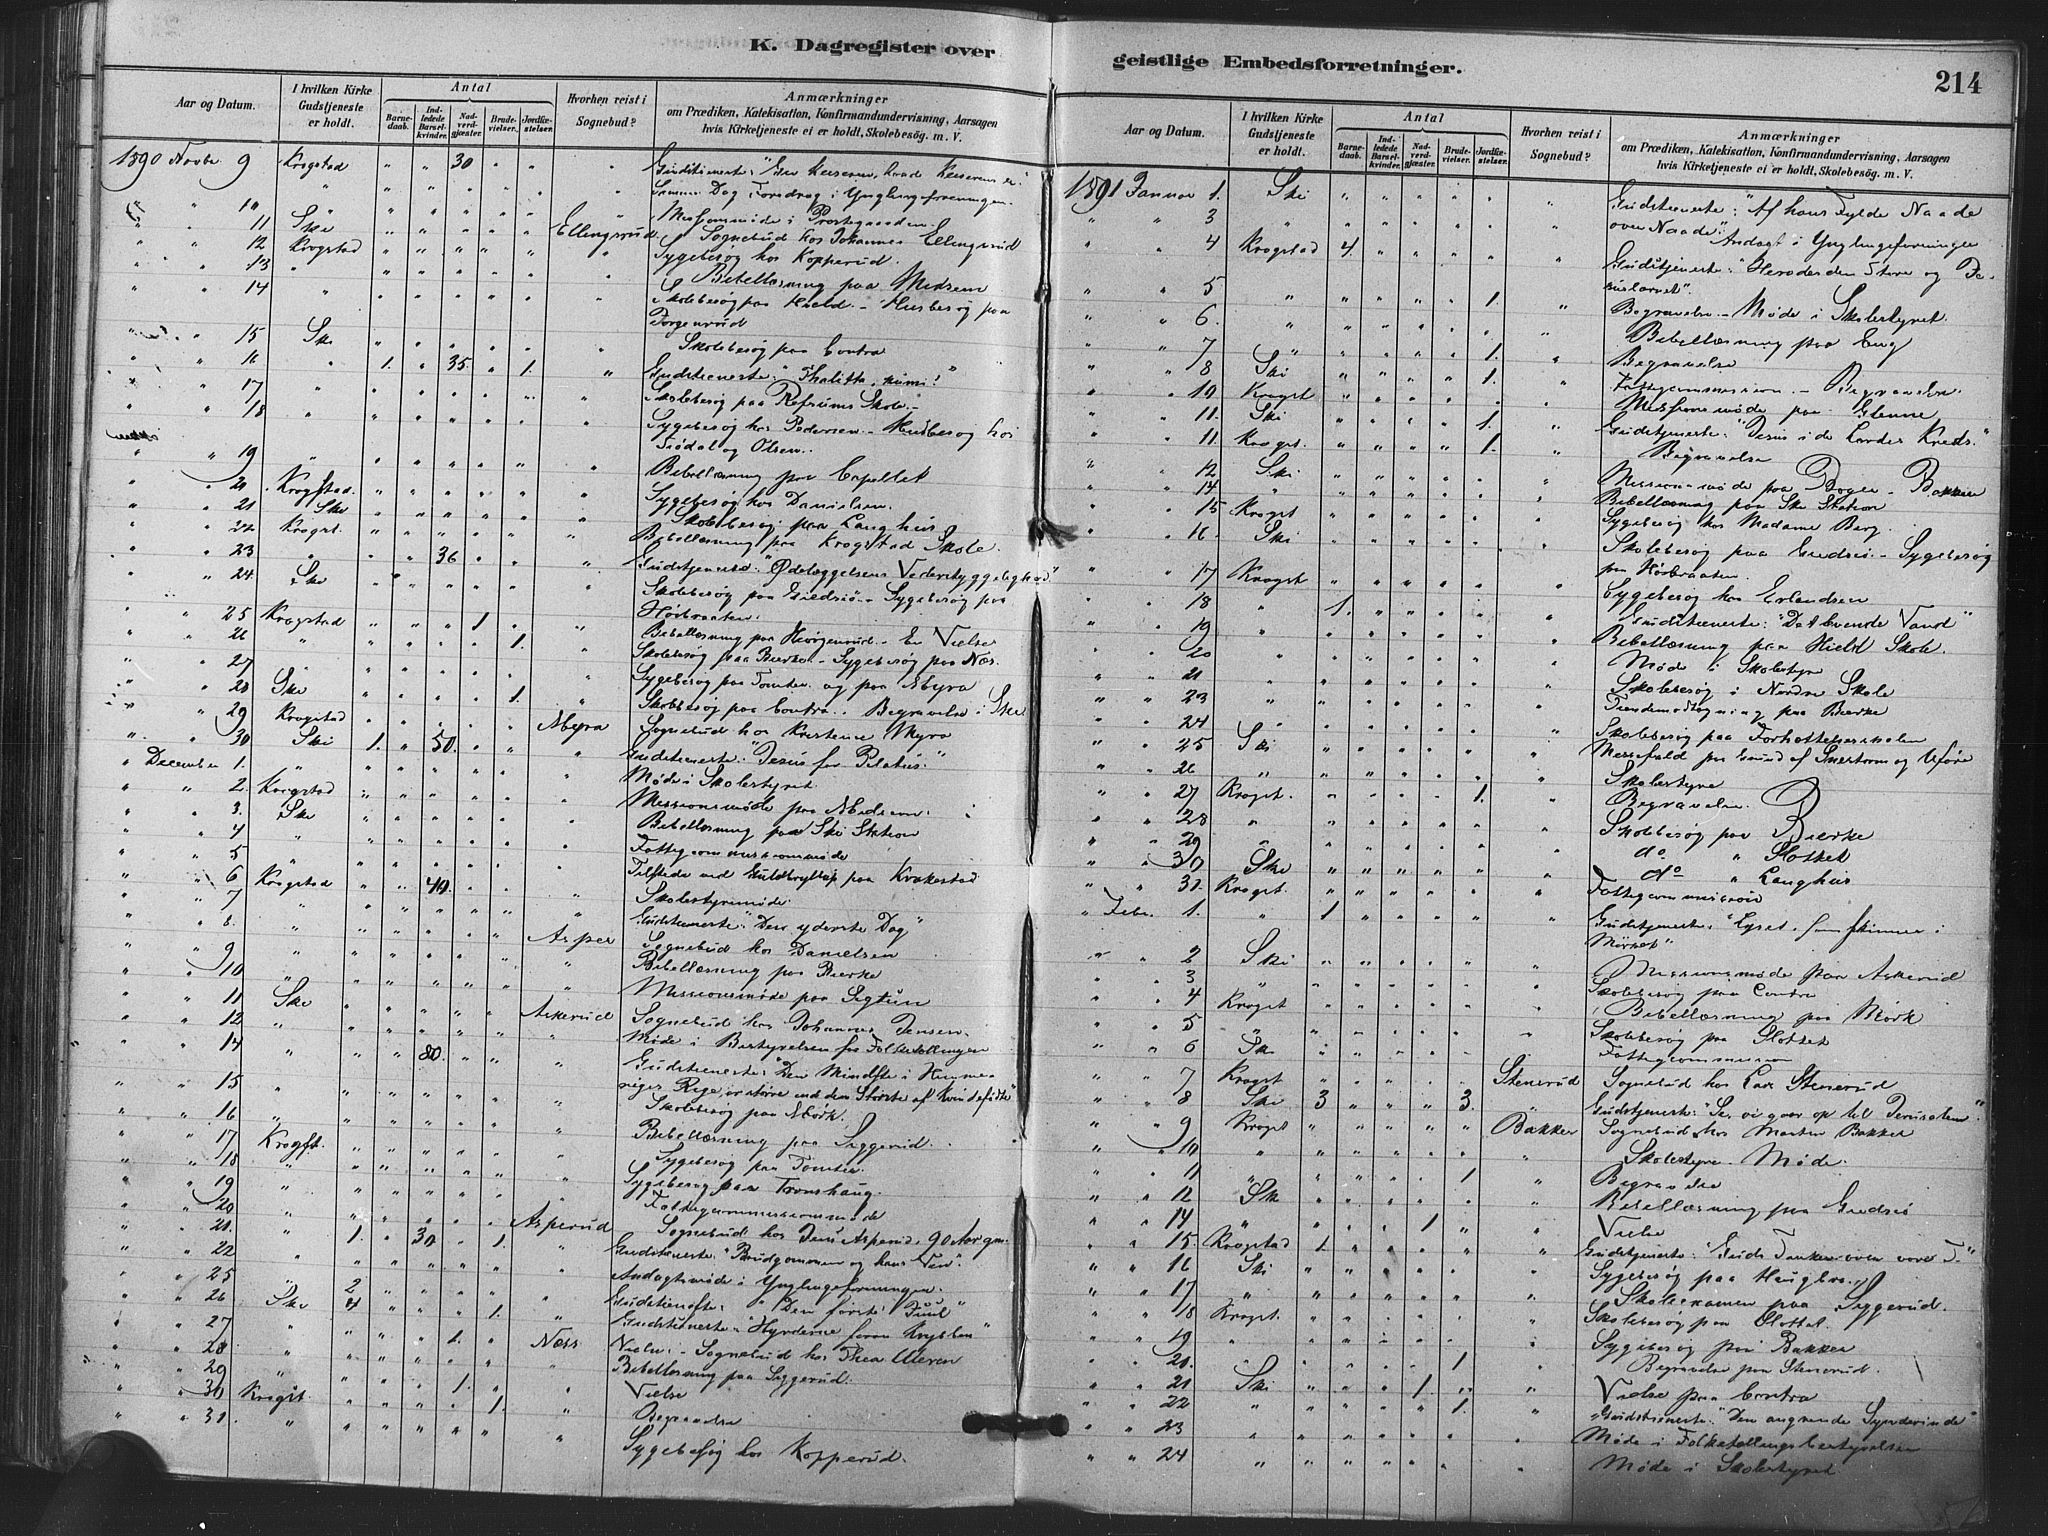 K. Dagregister over
geistlige Embedsforretninger.
214
Aar og Datum.
I hvilken Kirke Gudstjeneste er holdt.
Antal
Barnedaab.
Indledede Barselkvinder.
Nadverdgjæster.
Brudevielser.
Jordfæstelser.
Hvorhen reist i Sognebud?
Anmærkninger
om Prædiken, Katekisation, Konfirmandundervisning, Aarsagen
hvis Kirketjeneste ei er holdt, Skolebesøg. m. V.
1890 Novbr 9 Krogstad " " 30 " " " Gudstjeneste: "Giv Keiseren, hvad Keiserens er".
" Samme Dag Foredrag i Ynglingeforeningen.
" " 10 " Missionsmøde i Prestegaarden.
" " 11 Ski Ellingsrud Sognebud hos Johannes Ellingsrud
" " 12 Krogstad Sygebesøg hos Kopperud.
" " 13 " Bibellæsning paa Midsem
" " 14 " Skolebesøg paa Hield - Husbesøg paa
Jorgenrud
" " 15 Ski Skolebesøg paa Contra
" " 16 " 1. " 35. " 1. " Gudstieneste: "Thalitta, kumi!"
" " 17 " Skolebesøg paa Refsrums Skole.
" " 18 " Sygebesøg hos Pedersen - Husbesøg hos
Fiødal og Olsen.
" " 19 " Bibellæsning paa Capellet
" " 20 Krogstad. Sygebesøg hos Danielsen.
" " 21 Ski Skolebesøg paa Langhus
" " 22 Krogst. Bibellæsning paa Krogstad Skole.
" " 23 " " " 36 " " " Gudstjeneste: "Ødelæggelsens Vederstyggelighed"
" " 24 Ski Skolebesøg paa Gudsiø - Sygebesøg paa
Hørbraaten.
" " 25 Krogstad 1 Bibellæsning paa Hiorgenrud - En Vielse
" " 26 " 1. Skolebesøg paa Bierke - Sygebesøg paa Næs.
" " 27 " Sygebesøg paa Tomter og paa Myra
" " 28 Ski 1. Skolebesøg paa Contra. Begravelse i Ski
" " 29 Krogstad Myra Sognebud hos Kristence Myra
" " 30 Ski 1. " 50. " " Gudstieneste: "Jesus for Pilatus."
" December 1. " Møde i Skolestyret.
" " 2. Krogstad Missionsmøde paa Midsem.
" " 3. Ski Bibellæsning paa Ski Station
" " 4 " Fattigcommissionsmøde
" " 5 " Tilstede ved Guldbryllup paa Krakestad
" " 6 Krogstad " " 40. Skolestyremøde
" " 7 " Gudstieneste: "Den yderste Dag"
" " 8. " Asper Sognebud hos Danielsen
" " 9 " Bibellæsning paa Bierke
" " 10 " Missionsmøde paa Sigtun
" " 11 Ski Askerud Sognebud hos Johannes Jensen.
" " 12 " Møde i Bestyrelsen for Folketællingen
" " 14 " 80. Gudstieneste: "Den Mindste i Himme-
riges Rige, er større end den Største af Kvindefødte"
" " 15 " Skolebesøg paa Mørk.
" " 16 " Bibellæsning paa Siggerud.
" " 17 Krogst. Sygebesøg paa Tomter.
" " 18 " Sygebesøg paa Tronshaug.
" " 19 " Fattigcommissionsmøde
" " 20 " Asperud Sognebud hos Jens Asperud, 90 Aar gm.
" " 21. " 1. " 30 " 1. " Gudstieneste: "Brudgommen og hans Ven".
" " 22 " Andagtsmøde i Ynglingeforeningen.
" " 25 " 2 Gudstieneste: "Den første Juul"
" " 26 Ski 4 " " " 1. " Gudstieneste: "Hyrderne foran Krybben"
" " 27 "
" " 28 " 1. " Næss Vielse. - Sognebud hos Thea Uleren
" " 29 " Bibellæsning paa Siggerud.
" " 30 Krogst. 1. " Vielse
" " 31 " 1. " Begravelse
Sygebesøg hos Kopperud.
Aar og Datum.
I hvilken Kirke Gudstjeneste er holdt.
Antal
Barnedaab.
Indledede Barselkvinder.
Nadverdgjæster.
Brudevielser.
Jordfæstelser.
Hvorhen reist i Sognebud?
Anmærkninger
om Prædiken, Katekisation, Konfirmandundervisning, Aarsagen
hvis Kirketjeneste ei er holdt, Skolebesøg. m. V.
1891 Januar 1. Ski Gudstieneste: "Af hans Fylde Naade
over Naade".
" " 3 " Andagt i Ynglingeforeningen
" " 4 Krogstad 4. Gudstjeneste: "Herodes den Store og Je-
susbarnet".
" " 5 " 1. Begravelse - Møde i Skolestyret.
" " 6. " Bibellæsning paa Eng
" " 7 " 1. Begravelse
" " 8 Ski 1. Fattigcommission - Begravelse
" " 10 Krogst Missionsmøde paa Glenne
" " 11. Ski 1. Gudstjeneste: "Jesus i de Lærdes Kreds."
" " 11. Krogst. 1. Begravelse
" " 12 Ski Missionsmøde paa Bøger - Bakken
" " 14 " Bibellæsning paa Ski Station
" " 15 Krogst Sygebesøg hos Madame Berg.
" " 16. Ski Skolebesøg paa Gudsiø - Sygebesøg
paa Hørbraaten.
" " 17 Krogst Sygebesøg hos Erlandsen
" " 18 " 1. Gudstieneste: "Det levende Vand"
" " 19 " Bibellæsning paa Hield Skole.
" " 20 " Møde i Skolestyre
" " 21 " Skolebesøg i Nordre Skole
" " 23 " Tiendemodtagning paa Bierke
" " 24 " Skolebesøg paa Forhottenskolen
" " 25 Ski Messefald paa Grund af Snestorm og Uføre
" " 26 " Skolestyre
" " 27 Krogst. 1. Begravelse.
" " 28 " Skolebesøg paa Bierke
" " 29 " do. " Slottet
" " 30 Ski do " Langhus
" " 31 Krogst. Fattigcommission
" Febr. 1. " 1 Gudstjeneste: "Lyset, som skinner i
Mørket"
" " 2 Ski Missionsmøde paa Askerud
" " 3 " Skolebesøg paa Contra
" " 4 Krogst Bibellæsning paa Mørk
" " 5 " Skolebesøg paa Slottet
" " 6 Ski Fattigcommission
" " 7 Krogst Stenerud Sognebud hos Lars Stenerud
" " 8 Ski 3 " " " 3. " Gudstjeneste: "Se, vi gaar op til Jerusalem".
" " 9 Krogst Bakker Sognebud hos Martin Bakker
" " 10 " Skolestyre. Møde.
" " 11 " 1 Begravelse
" " 12 Ski Bibellæsning paa Gudsiø
" " 14 " 1 Vielse
" " 15. Krogstad 1. Gudstjeneste: "Guds Tanker over vore T."
" " 16 Ski Sygebesøg paa Haugbro
" " 17 " Skoleexamen paa Siggerud.
" " 18 Krogst. Skolebesøg paa Slottet
" " 19 " Sygebesøg paa Bakker
" " 20. " 1 Begravelse paa Stenerud.
" " 21 Ski 1 Vielse paa Contra
" " 22 " 1. Gudstieneste: "Den angrende Synderinde"
" " 23 " Møde i Folketællingsbestyrelsen
" " 24 " Møde i Skolestyret